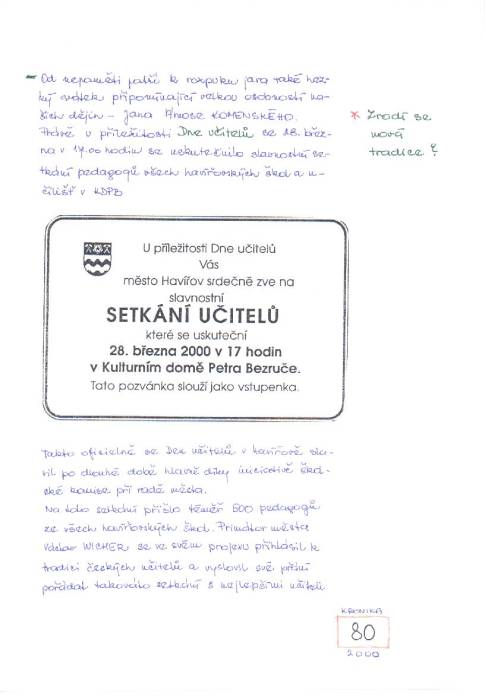 Od nepaměti patří k rozpuku jara také hez-
ký svátek připomínající velkou osobnost na-
šich dějin - Jana Amose KOMENSKÉHO.
Právě u příležitosti Dne učitelů se 28. břez-
na v 17.00 hodin se uskutečnilo slavnostní se-
tkání pedagogů všech havířovských škol a u-
čilišť v KDPB
* Zrodí se
nová
tradice?
U příležitosti Dne učitelů
Vás
město Havířov srdečně zve na
slavnostní
SETKÁNÍ UČITELŮ
které se uskuteční
28. března 2000 v 17 hodin
v Kulturním domě Petra Bezruče.
Tato pozvánka slouží jako vstupenka.
Takto oficielně se Den učitelů v Havířově sla-
vil po dlouhé době hlavně díky iniciativě škol-
ské komise při radě města.
Na toto setkání přišlo téměř 500 pedagogů
ze všech havířovských škol. Primátor města
Václav WICHER se ve svém projevu přihlásil k
tradici českých učitelů a vyslovil své přání
pořádat takováto setkání s nejlepšími učiteli
KRONIKA
80
2000